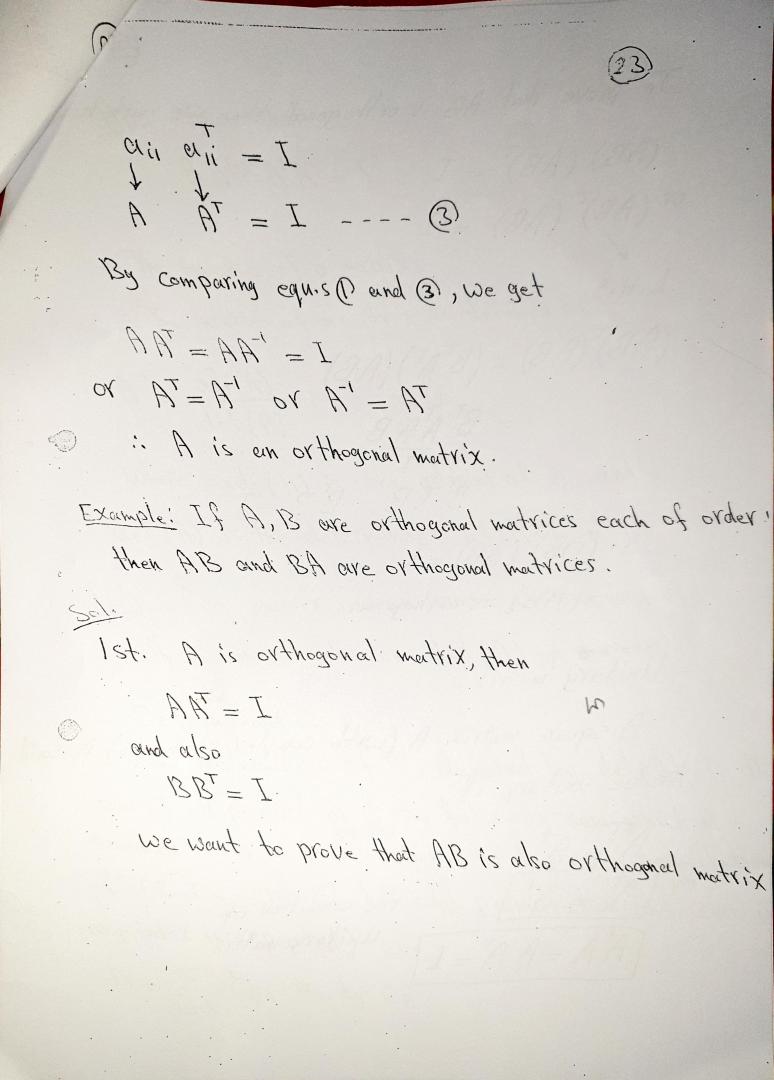 23
aii aiiᵀ = I
↓ ↓
A Aᵀ = I ---- ③
By comparing equ.s ① and ③, we get
AAᵀ = AA⁻¹ = I
or Aᵀ = A⁻¹ or A⁻¹ = Aᵀ
∴ A is an orthogonal matrix.
Example: If A, B are orthogonal matrices each of order
then AB and BA are orthogonal matrices.
Sol.
1st. A is orthogonal matrix, then
AAᵀ = I
and also
BBᵀ = I
we want to prove that AB is also orthogonal matrix